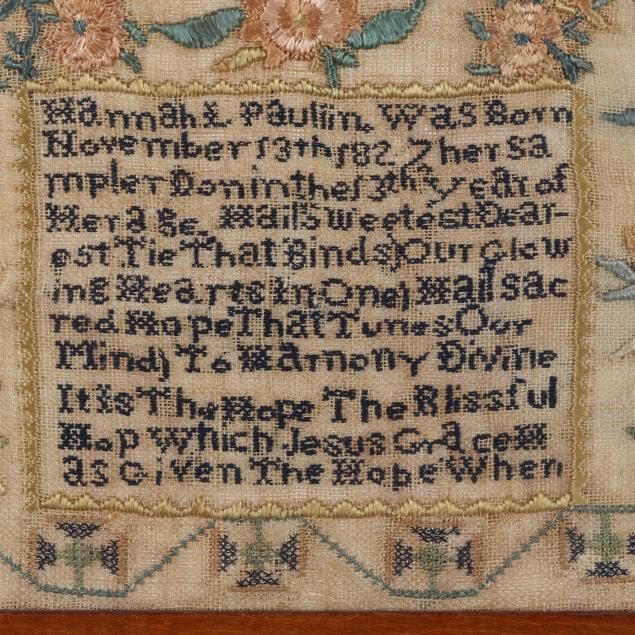 Hannah L Paullin, Was Born
November 13th 182 7 her sa
mpler Don in the 13th year of
Her age Hail Sweetest Dear-
est Tie That Binds Our Glow
ing Hearts In One Hail sac
red Hope That Tunes Our
Minds To Harmony Divine
It is The Hope The Blissful
Hop Which Jesus Grace H
as Given The Hope When